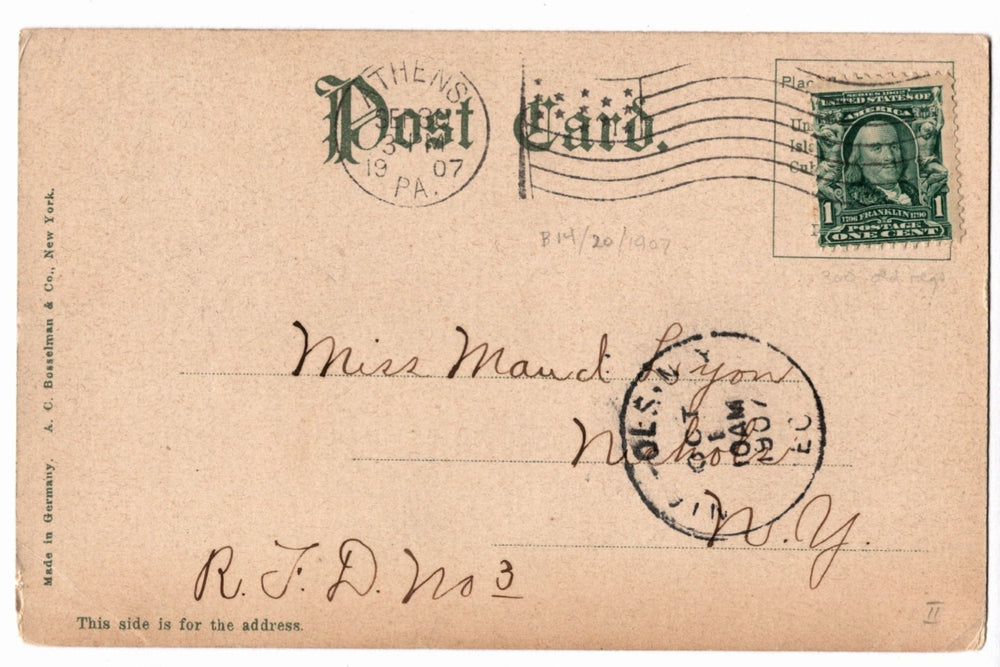 Post Card.
ATHENS
3 M
19 07
PA.
SERIES 1902
UNITED STATES OF
AMERICA
1 1
1706 FRANKLIN 1790
POSTAGE
ONE CENT
Plac
Un
Isl
B14/20/1907
Miss Maud Lyon
Nichols
N.Y.
R.F.D. No 3
OLS. N.Y.
OCT
1
10AM
1907
REC
This side is for the address.
Made in Germany. A. C. Bosselman & Co., New York.
II